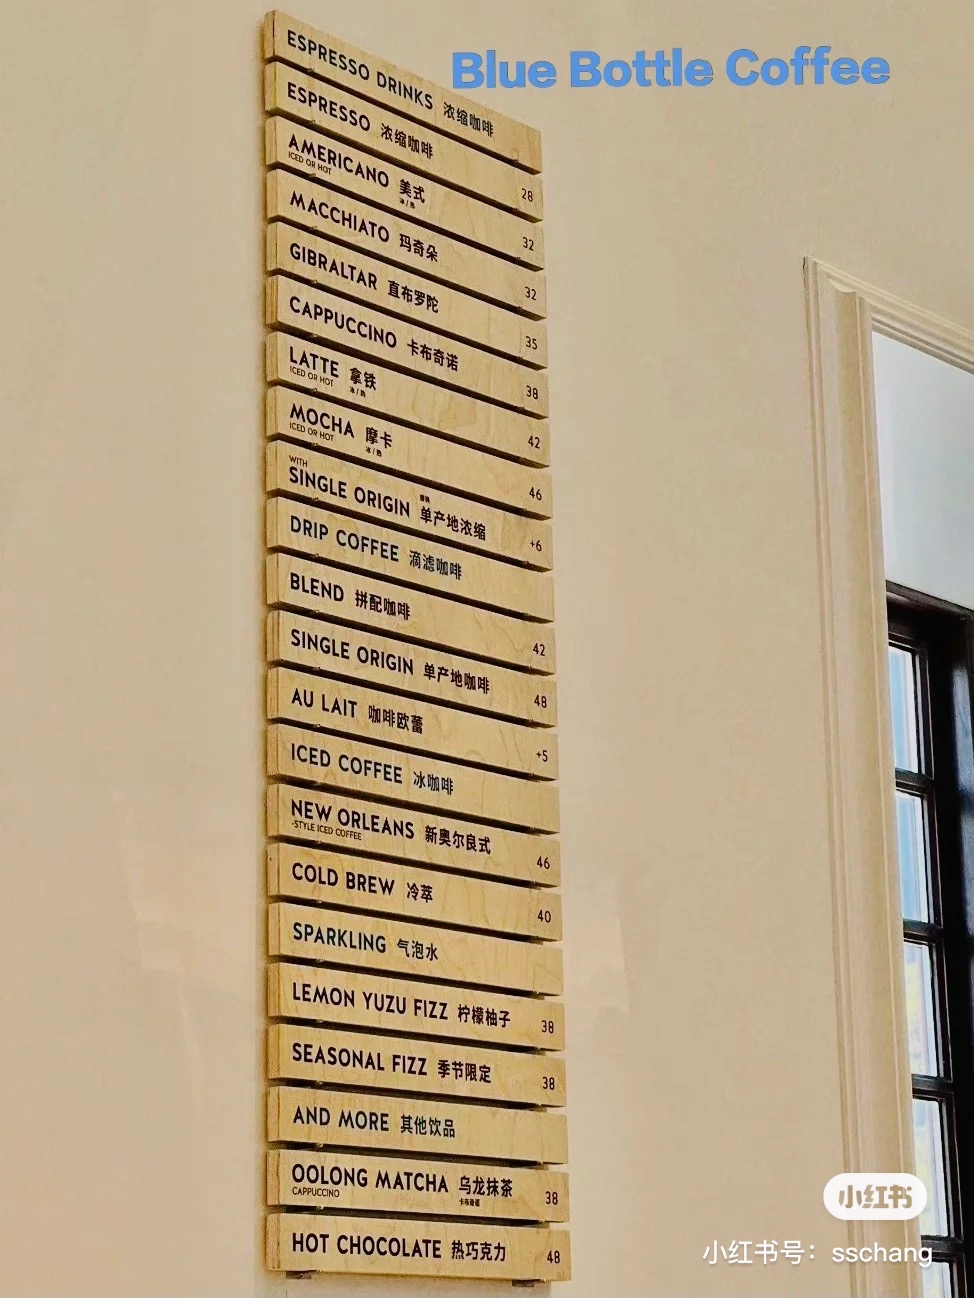 Blue Bottle Coffee
ESPRESSO DRINKS 浓缩咖啡
ESPRESSO 浓缩咖啡 28
AMERICANO 美式 32
ICED OR HOT 冰/热
MACCHIATO 玛奇朵 32
GIBRALTAR 直布罗陀 35
CAPPUCCINO 卡布奇诺 38
LATTE 拿铁 42
ICED OR HOT 冰/热
MOCHA 摩卡 46
ICED OR HOT 冰/热
WITH
SINGLE ORIGIN 单产地浓缩 +6
DRIP COFFEE 滴滤咖啡
BLEND 拼配咖啡 42
SINGLE ORIGIN 单产地咖啡 48
AU LAIT 咖啡欧蕾 +5
ICED COFFEE 冰咖啡
NEW ORLEANS 新奥尔良式 46
-STYLE ICED COFFEE
COLD BREW 冷萃 40
SPARKLING 气泡水
LEMON YUZU FIZZ 柠檬柚子 38
SEASONAL FIZZ 季节限定 38
AND MORE 其他饮品
OOLONG MATCHA 乌龙抹茶 38
CAPPUCCINO 卡布奇诺
HOT CHOCOLATE 热巧克力 48
小红书
小红书号：sschang